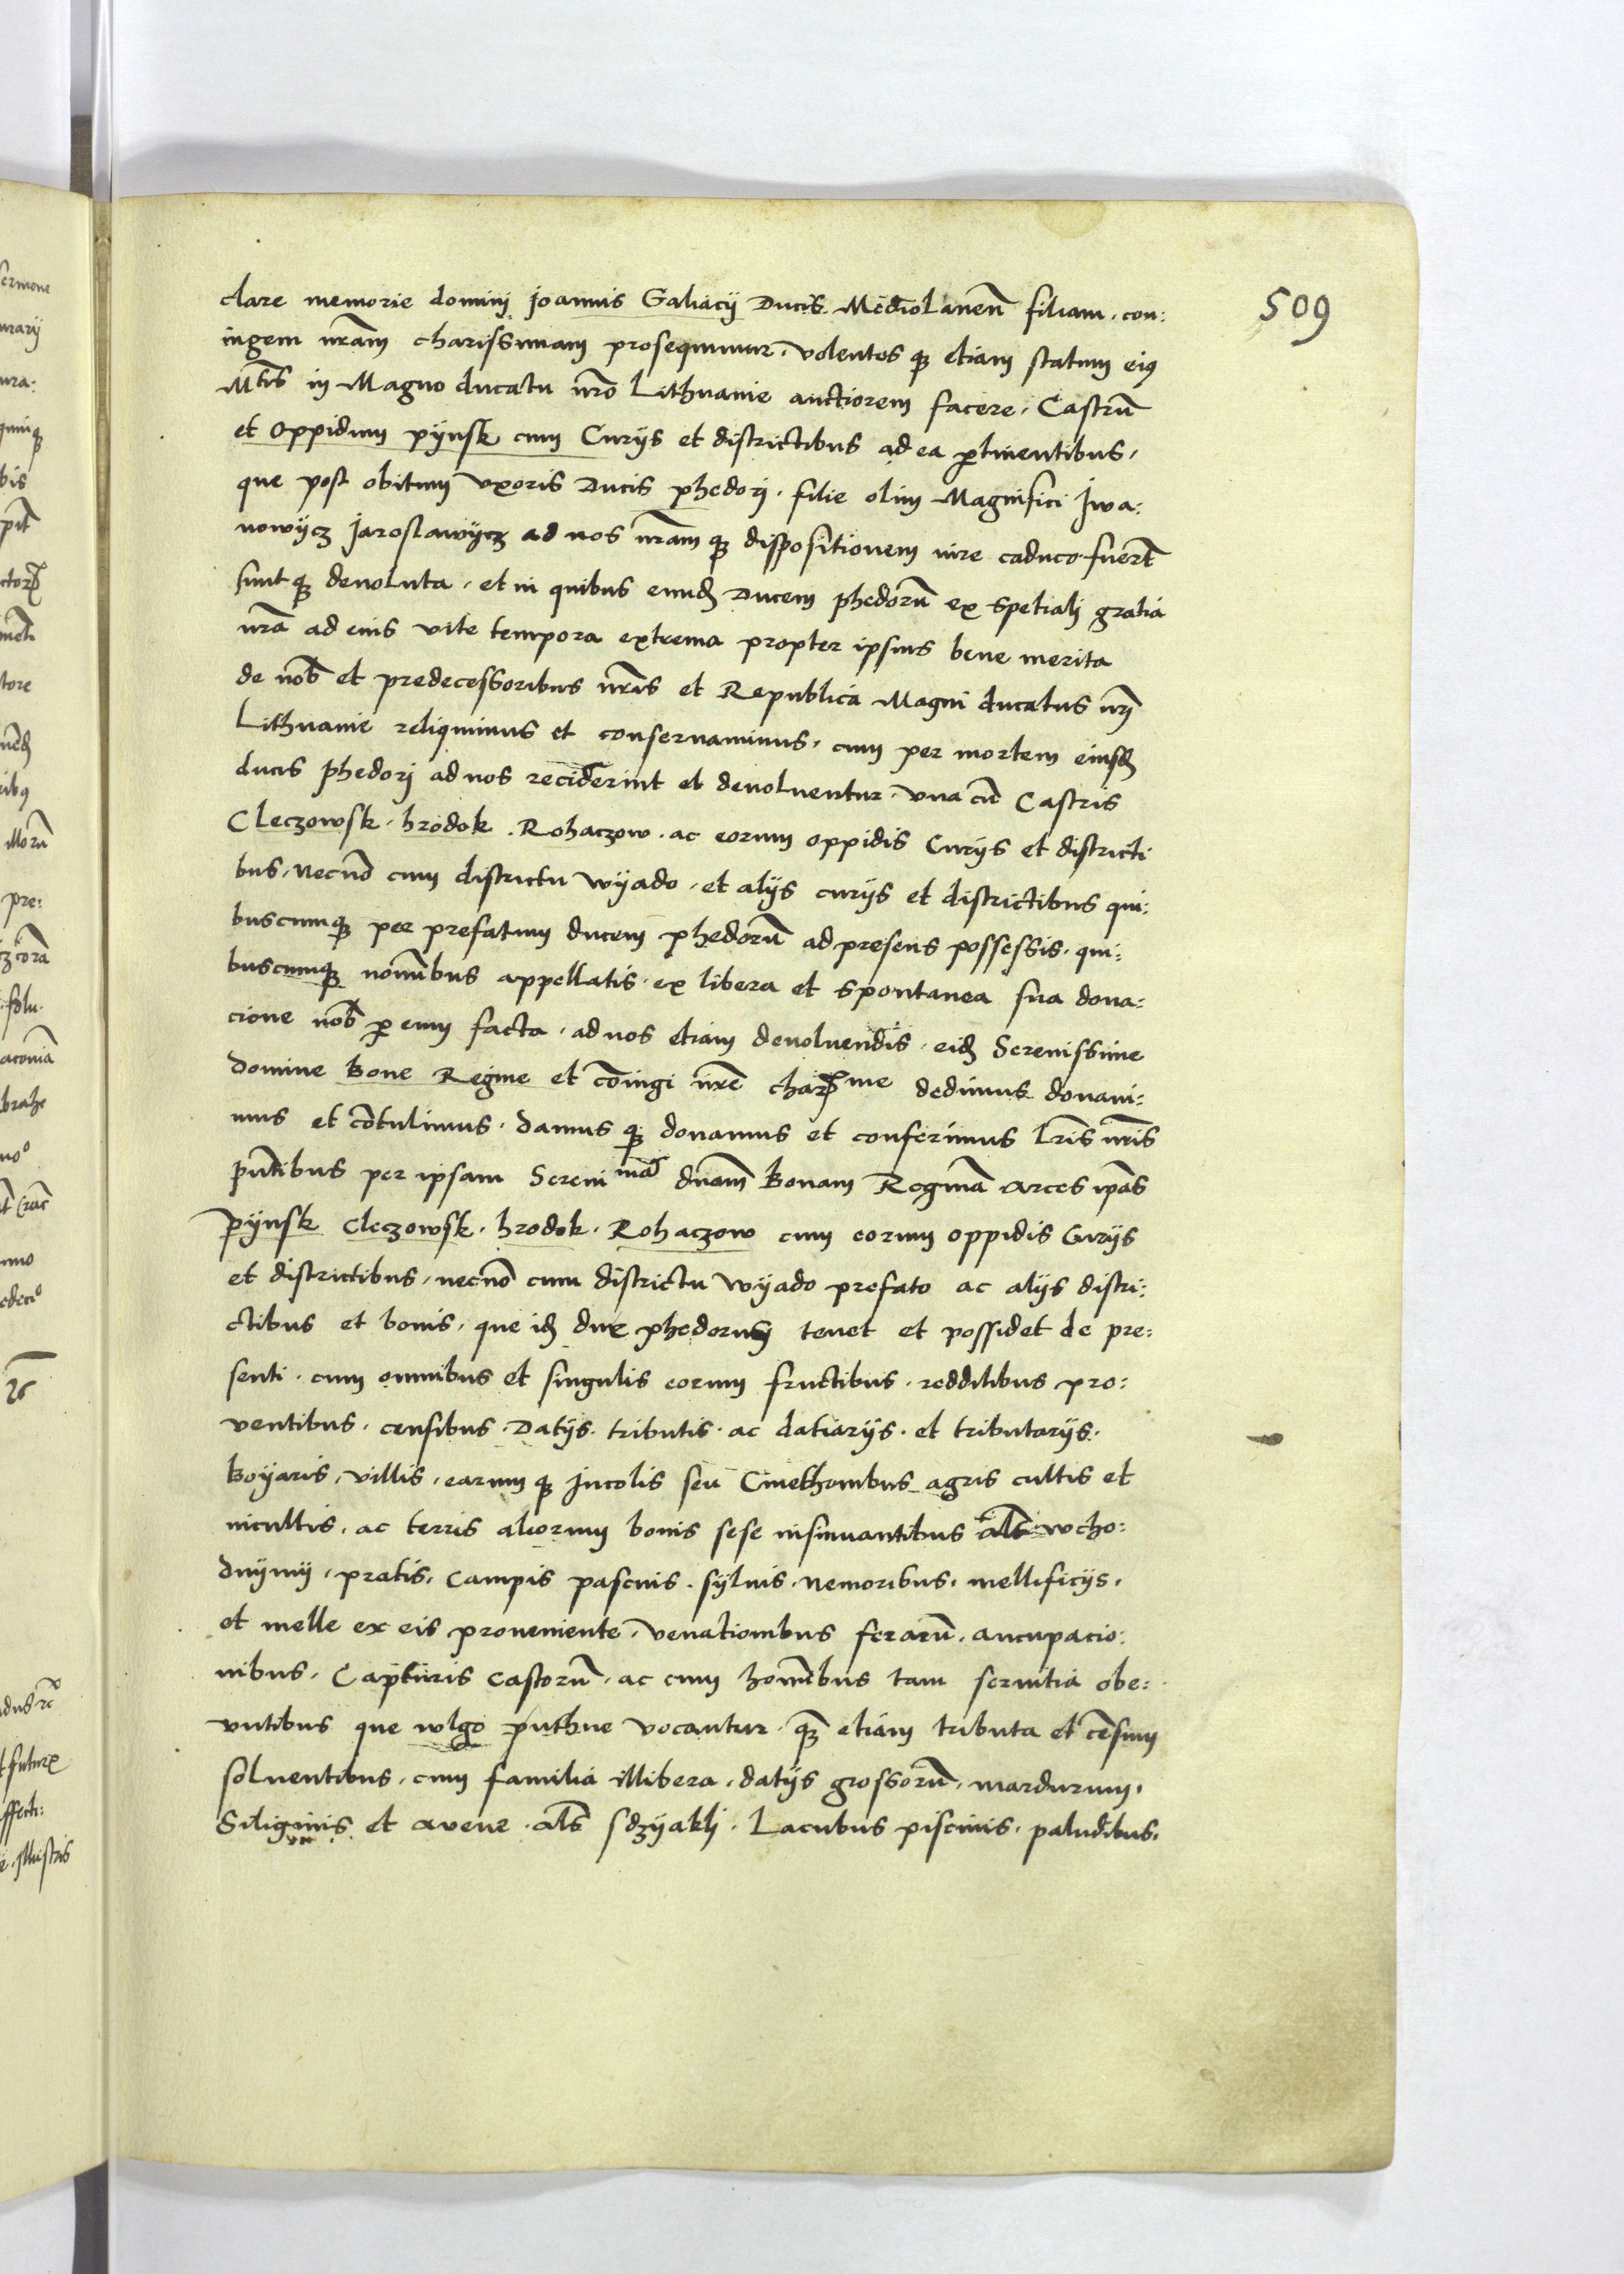 509
clare memorie dominj Joannis Galiacij Ducis Mediolanen̄ filiam, con:
iugem nr̄am charissimam prosequimur, volentes qʒ etiam statum eiꝰ
Mt̄is in Magno ducatu nr̄o Lithuanie auctiorem facere, Castrū
et oppidum pijnsk cum Curijs et districtibus ad ea ꝑtinentibus,
que post obitum vxoris Ducis phedorj, filie olim Magnifici Iwa:
nowijcz Jaroslawijcz ad nos nr̄am qʒ dispositionem iure caduco fuer̄t
sunt qʒ deuoluta, et in quibus eund̄ Ducem phedorū ex spetialj gratia
nr̄a ad eius vite tempora extrema propter ipsius bene merita
de nob̄ et predecessoribus nr̄is et Republica Magni ducatus nr̄j
Lithuanie reliquimus et conseruauimus, cum per mortem eiusd̄
ducis phedorj ad nos reciderint et deuoluentur, vna cū Castris
Cleczowsk, hrodok, Rohaczow, ac eorum oppidis Curijs et districti
bus, necnō cum districtu wijado, et alijs curijs et districtibus qui:
buscumqʒ per prefatum ducem phedorū ad presens possessis, qui:
buscumqʒ nomībus appellatis, ex libera et spontanea sua dona:
cione nob̄ ꝑ eum facta, ad nos etiam deuoluendis, eid̄ Serenissime
Domine Bone Regine et cōiugi nr̄e char̄me dedimus donaui:
mus et cōtulimus, Damus qʒ donamus et conferimus lr̄is nr̄is
pn̄tibus per ipsam Sereni mā dn̄am Bonam Reginā arces ip̄as
Pijnsk Cleczowsk, hrodok, Rohaczow cum eorum oppidis Curijs
et districtibus, necnō cum districtu wijado prefato ac alijs distri:
ctibus et bonis, que id̄ dux phedorus tenet et possidet de pre:
senti, cum omnibus et singulis eorum fructibus, redditibus pro:
ventibus, censibus, Datijs, tributis, ac datiarijs, et tributarijs,
Boijaris, villis, earum qʒ Incolis seu Cmethonibus agris cultis et
incultis, ac terris aliorum bonis sese insinuantibus al̄s wcho:
dnijmij, pratis, Campis pascuis, sijluis, nemoribus, mellificijs,
et melle ex eis proueniente, venationibus ferarū, aucupacio:
nibus, Capturis Castorū, ac cum homībus tam seruitia obe:
vntibus que wlgo puthne vocantur, qʒ etiam tributa et cēsum
soluentibus, cum familia illibera, datijs grossorū, mardurum,
Siliginis et avene, al̄s sdzijaklj, Lacubus piscinis, paludibus,